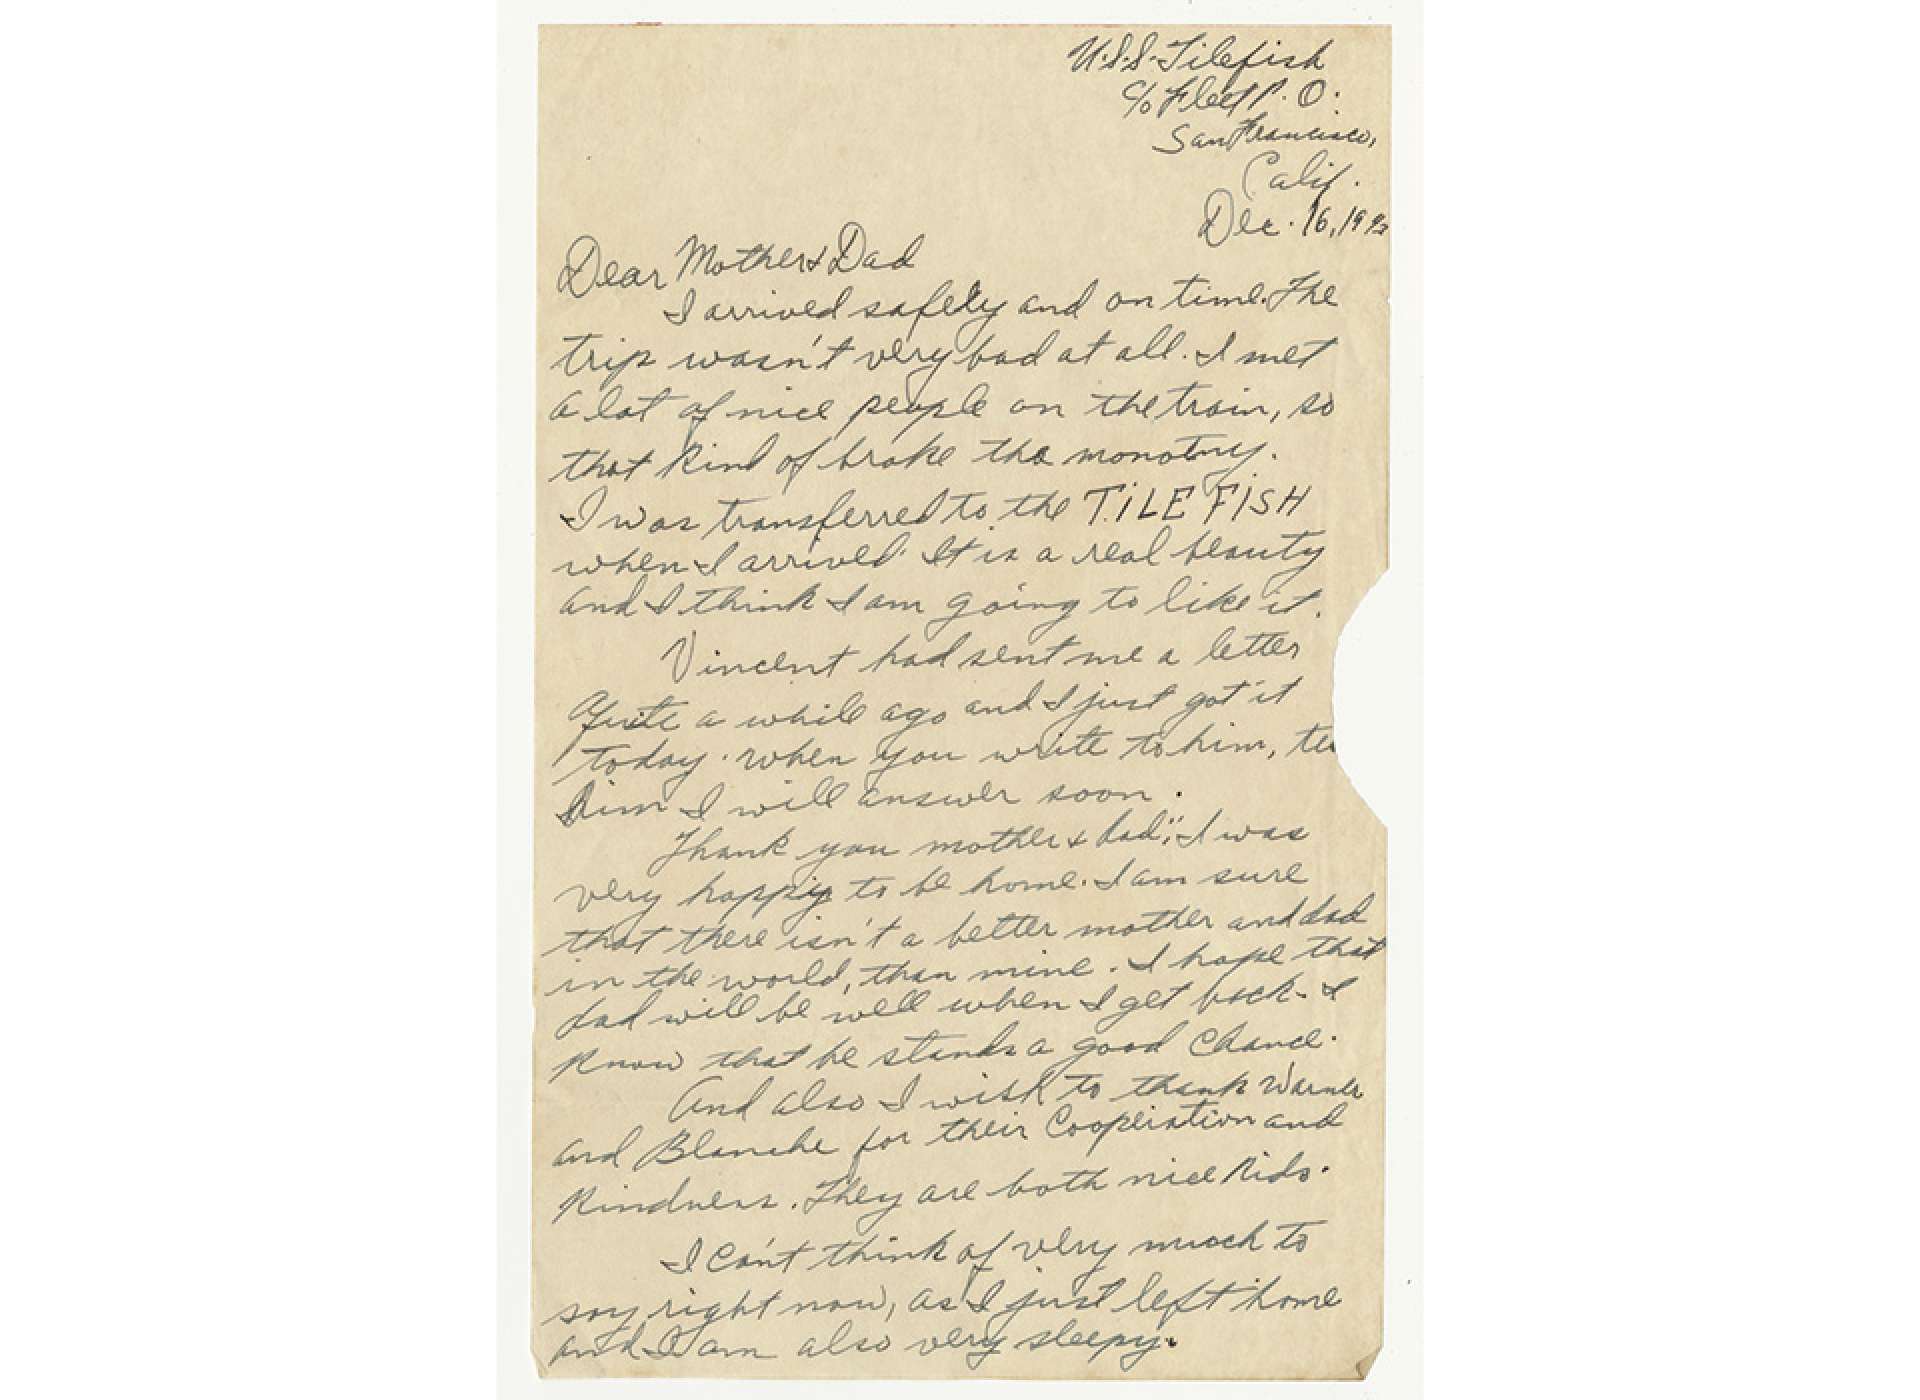 U.S.S. Tilefish
c/o Fleet P.O.
San Francisco,
Calif.
Dec. 16, 19
Dear Mother & Dad
I arrived safely and on time. The
trip wasn't very bad at all. I met
a lot of nice people on the train, so
that kind of broke the monotny.
I was transferred to the TILE FISH
when I arrived. It is a real beauty
and I think I am going to like it.
Vincent had sent me a letter
quite a while ago and I just got it
today. When you write to him, te
him I will answer soon.
Thank you mother & dad", I was
very happy to be home. I am sure
that there isn't a better mother and dad
in the world, than mine. I hope that
dad will be well when I get back. I
know that he stands a good chance.
And also I wish to thank Warner
and Blanche for their Cooperation and
kindness. They are both nice kids.
I can't think of very much to
say right now, as I just left home
and I am also very sleepy.